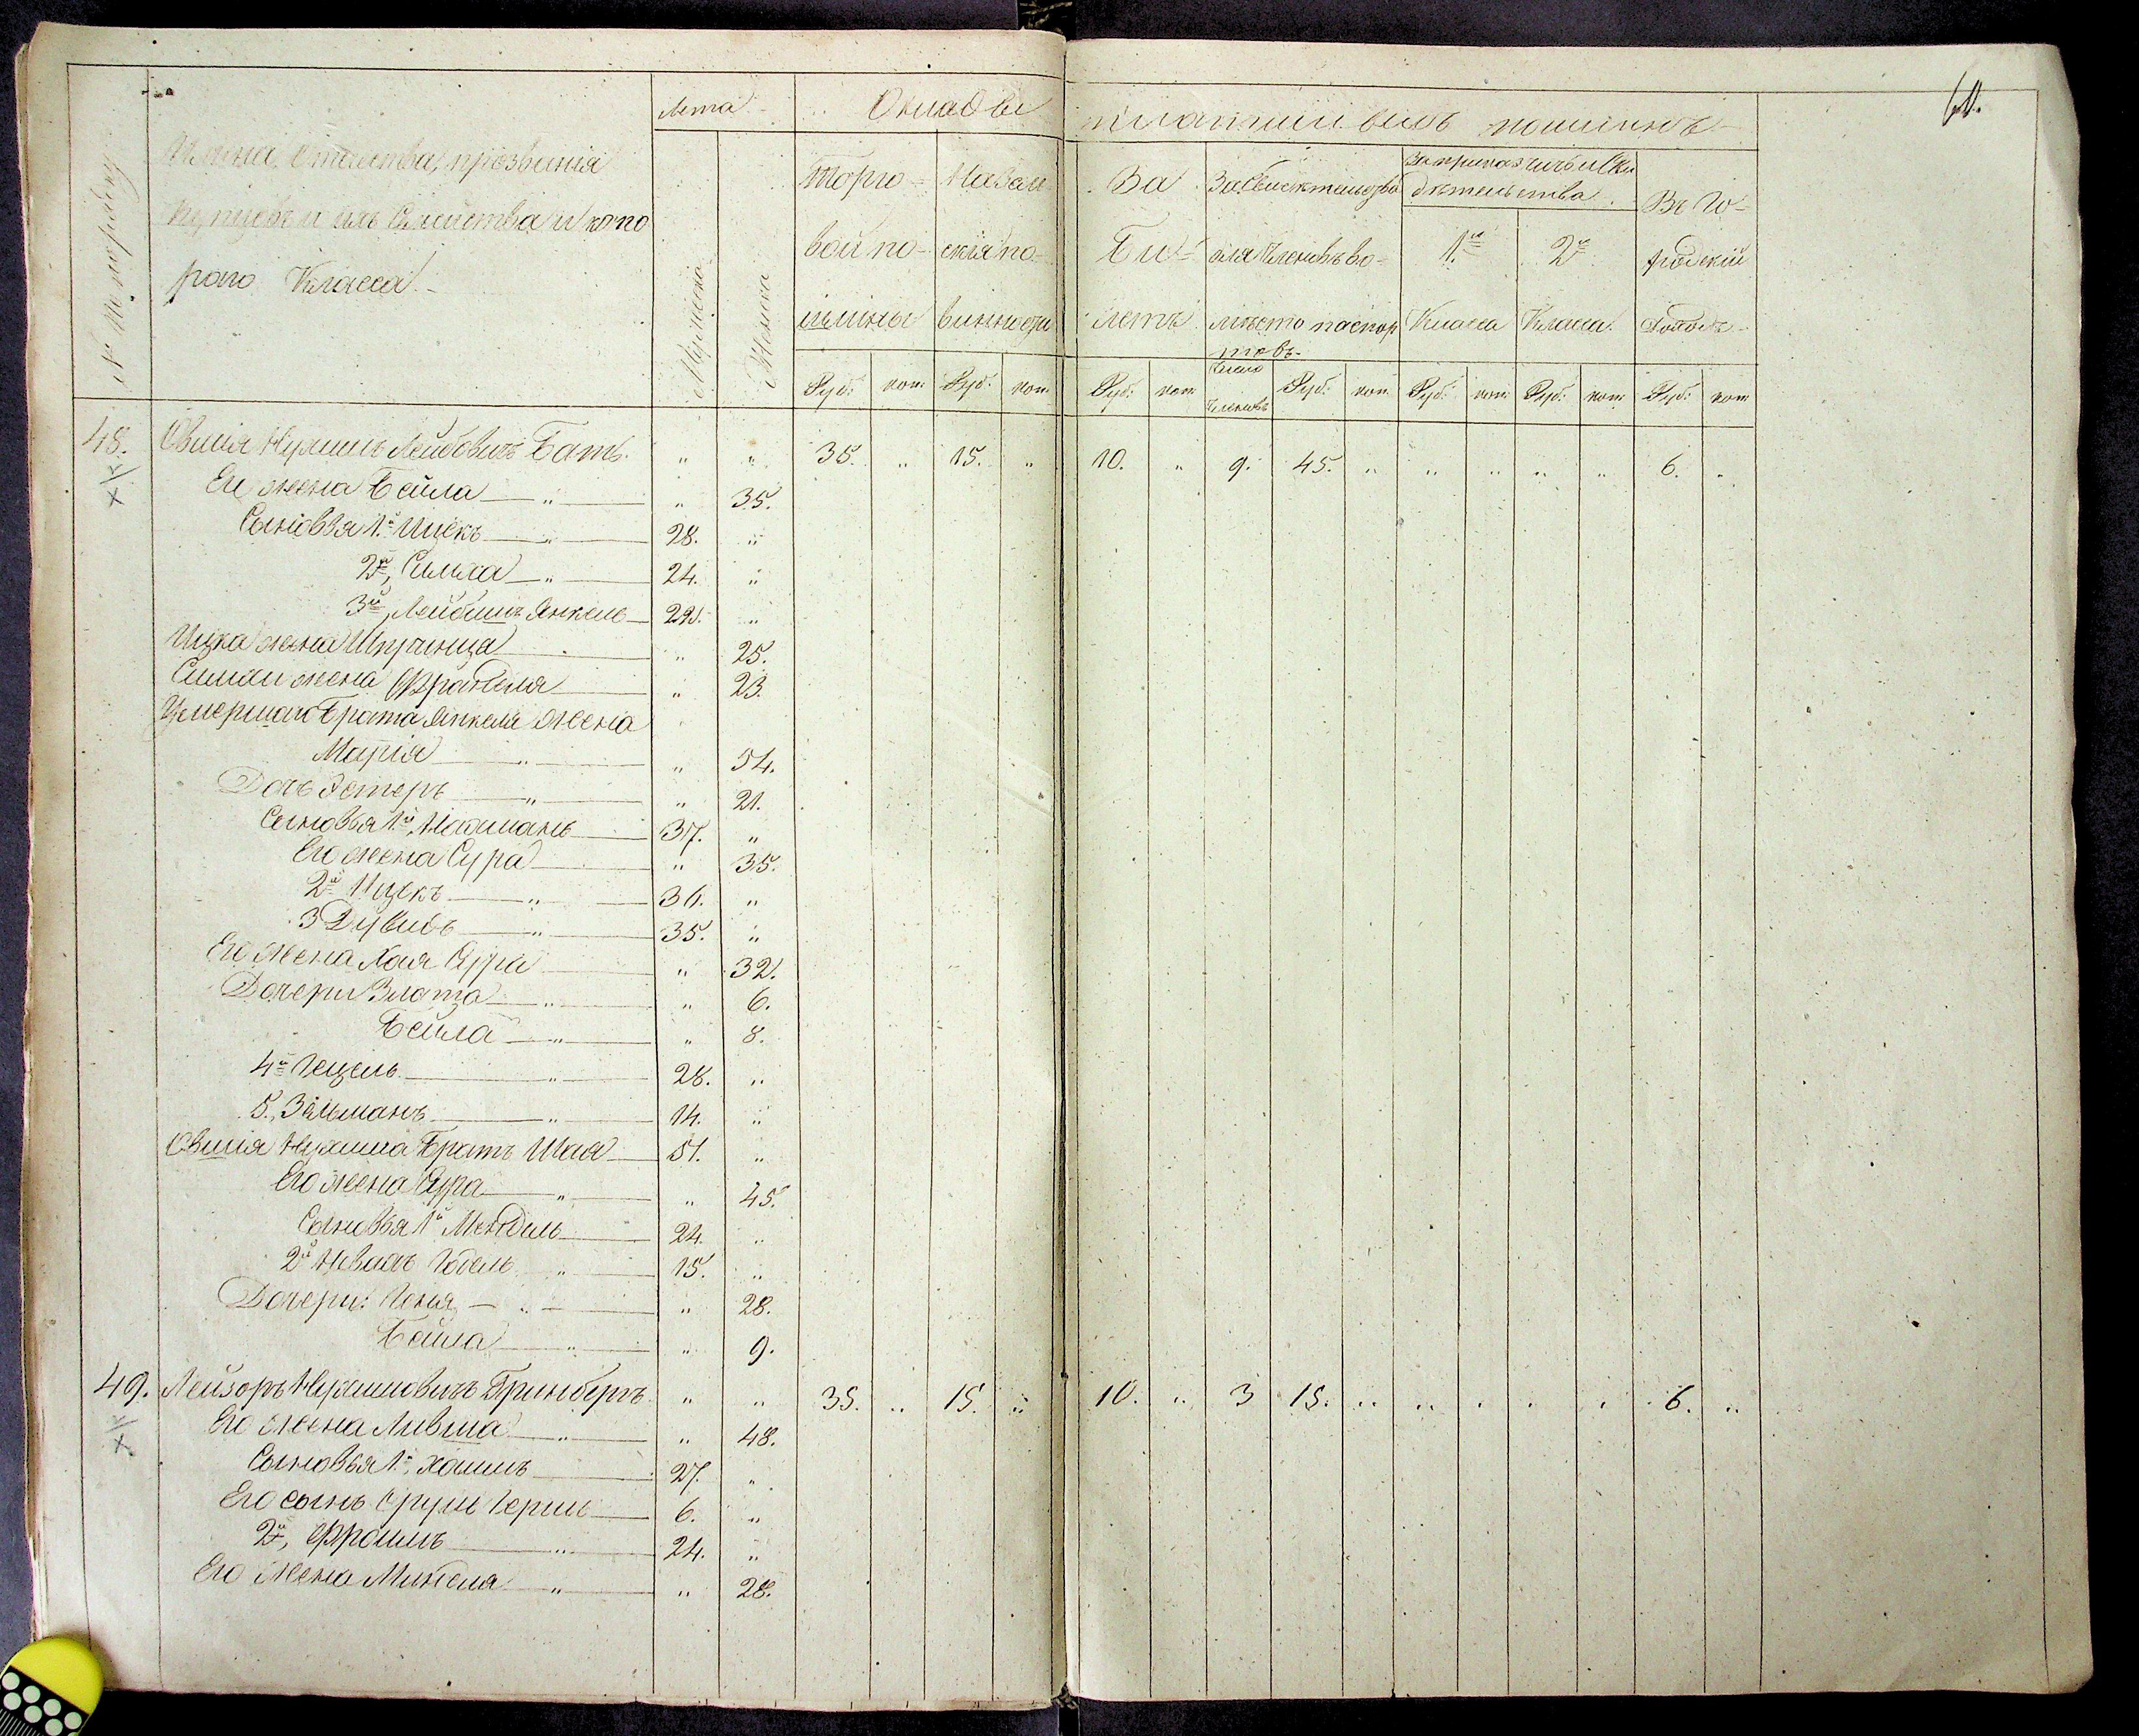 60.
Лета
Оклад ве
платимыхъ пошлинъ
№ по порядку
Имена, отчества, прозванія
купцовъ и ихъ Семейства и кото
раго Класса
Мужеска
Женска
Торго-
вой по-
шлины
Руб: коп.
Казан
скія по-
винности
Руб. коп
За
Би-
летъ
Руб: коп
За Свидетельство
для Членовъ во-
место паспор
товъ.
Число
Членовъ
Руб: коп
За приказчичьи Сви
детельства.
1й
Класса
Руб: коп
2й
Класса
Руб: коп
Въ Го-
родскій
Доходъ
Руб: коп
48. Овшія Нухимъ Лейбовичъ Батъ. " " 35. " 15. " 10. " 9. 45. " " " " " 6. "
Его жена Бейла " " 35.
Сыновья 1й Ицекъ " 28. "
2й, Симха " 24. "
3й, Лейбишъ Янкель 22. "
Ицка жена Шпринца " 25.
Симхи жена Фрайделя " 23.
Умершаго Брата Янкеля жена
Марія " " 54.
Дочь Эстеръ " " 21.
Сыновья 1й, Нахманъ 37. "
Его жена Сура " 35.
2й Ицекъ " 36. "
3 Дувидъ " 35. "
Его жена Хая Сура " 32.
Дочери Злота " " 6.
Бейла " " 8.
4й Гецель " 28. "
5., Зельманъ " 14. "
Овшія Нухима Братъ Шая 51. "
Его жена Сура " " 45.
Сыновья 1й Мендель 24. "
2й Нивахъ Юдель " 15. "
Дочери: Геня " " 28.
Бейла " " 9.
49. Лейзоръ Нухимовичъ Гринбергъ " " 35. " 15. " 10. " 3 15. " " " " " 6. "
Его жена Ливша " " 48.
Сыновья 1й, Хаимъ 27. "
Его сынъ Сруль Гершъ 6. "
2й, Фроимъ " 24. "
Его Жена Миндля " " 28.